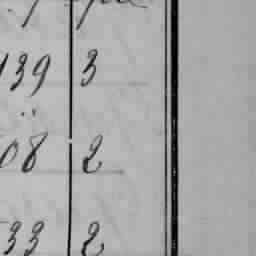 139 3
08 2
33 2